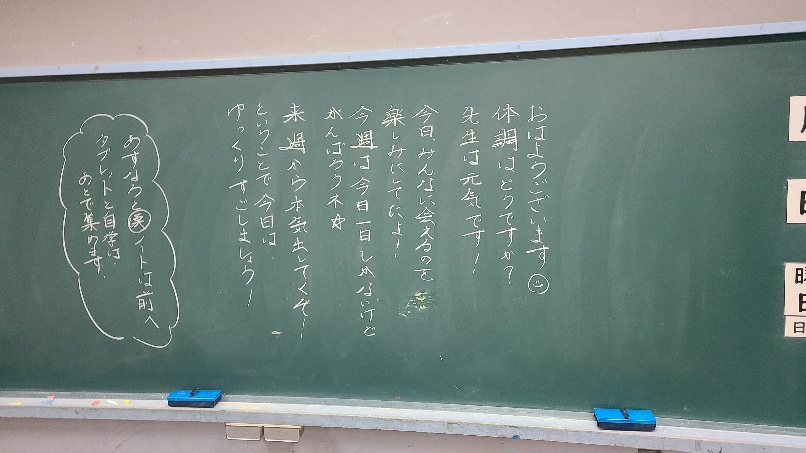 おはようございます
体調はどうですか?
先生は元気です!
今日みんなに会えるのを
楽しみにしてたよ!
今週は今日一日しかないけど
がんばろうネ☆
来週から本気出してくぞ!
ということで今日は、
ゆっくりすごしましょう!
あすなろと漢ノートは前へ
タブレットと自学は、
あとで集めます。
曜
日
日